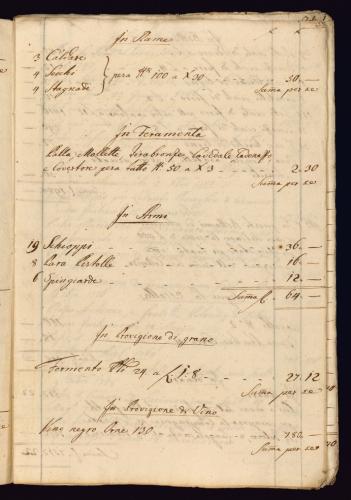 In Rame
3 Caldare
4 Secchi
4 Stagnade
pera ℔ 100 a X 30
50. —
Suma per se
In Feramenta
Palla Mollette
e Covertor pera tutto ℔ 50 a X 3
2. 30
Suma per se
In Armi
19 Schioppi
36. —
8 Para Pistolle
16. —
6 Spingarde
12. —
Suma f. 64. —
In Provigione di grano
Formento 24 a f 1: 8
27. 12
Suma per se
In Provigione di Vino
Vino negro Orne 130
780. —
Suma per se